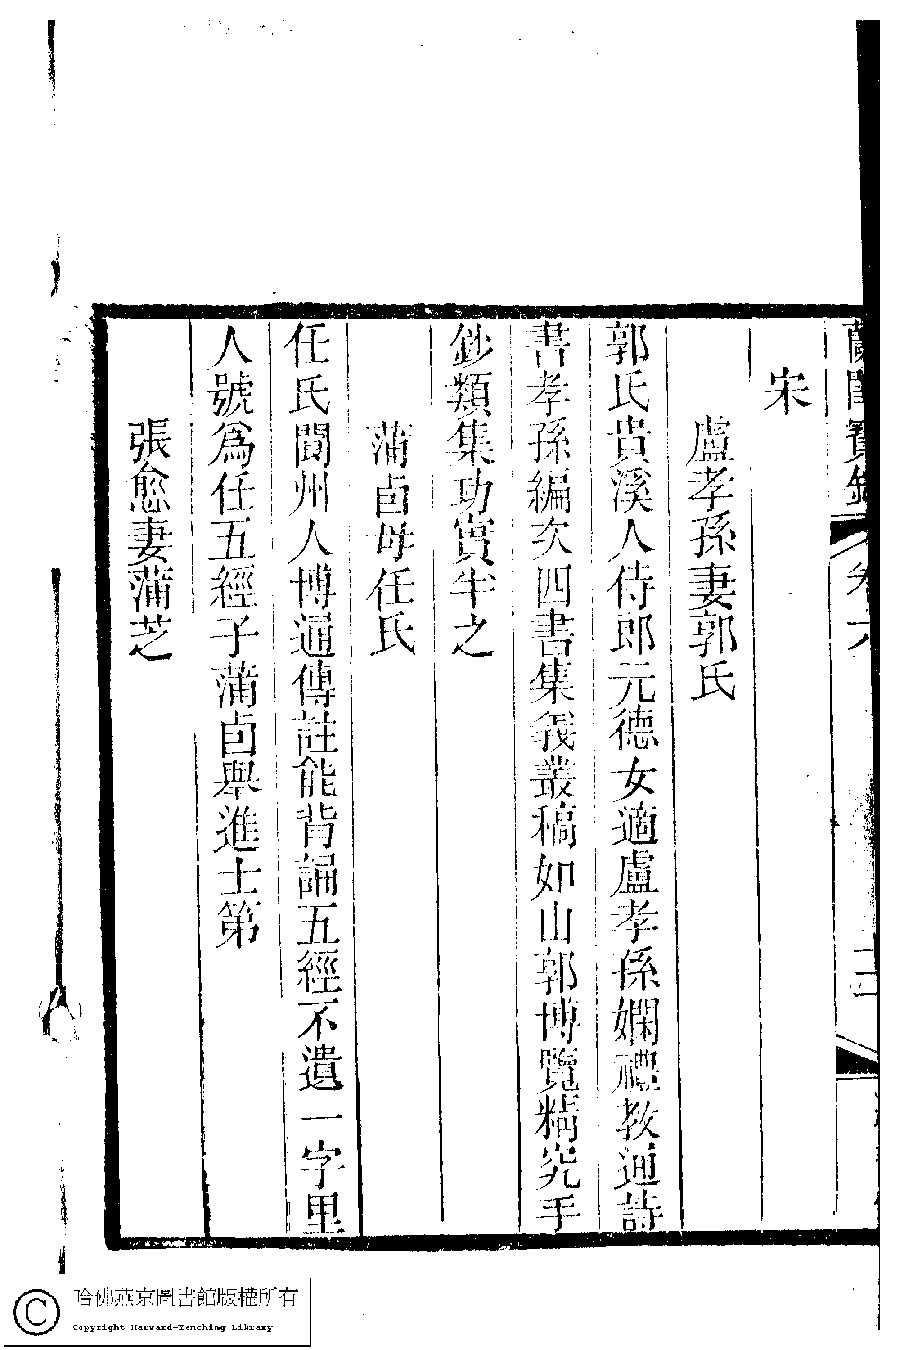 蘭閨寶錄 卷六
宋
盧孝孫妻郭氏
郭氏貴溪人侍郎元德女適盧孝係嫻禮教通詩
書孝孫編次四書集義叢稿如山郭博覽精究手
鈔類集功實半之
蒲卣母任氏
任氏閬州人博通傳註能背誦五經不遺一字里
人號爲任五經子蒲卣舉進士第
張愈妻蒲芝
哈佛燕京圖書館版權所有
Copyright Harvard-Yenching Library